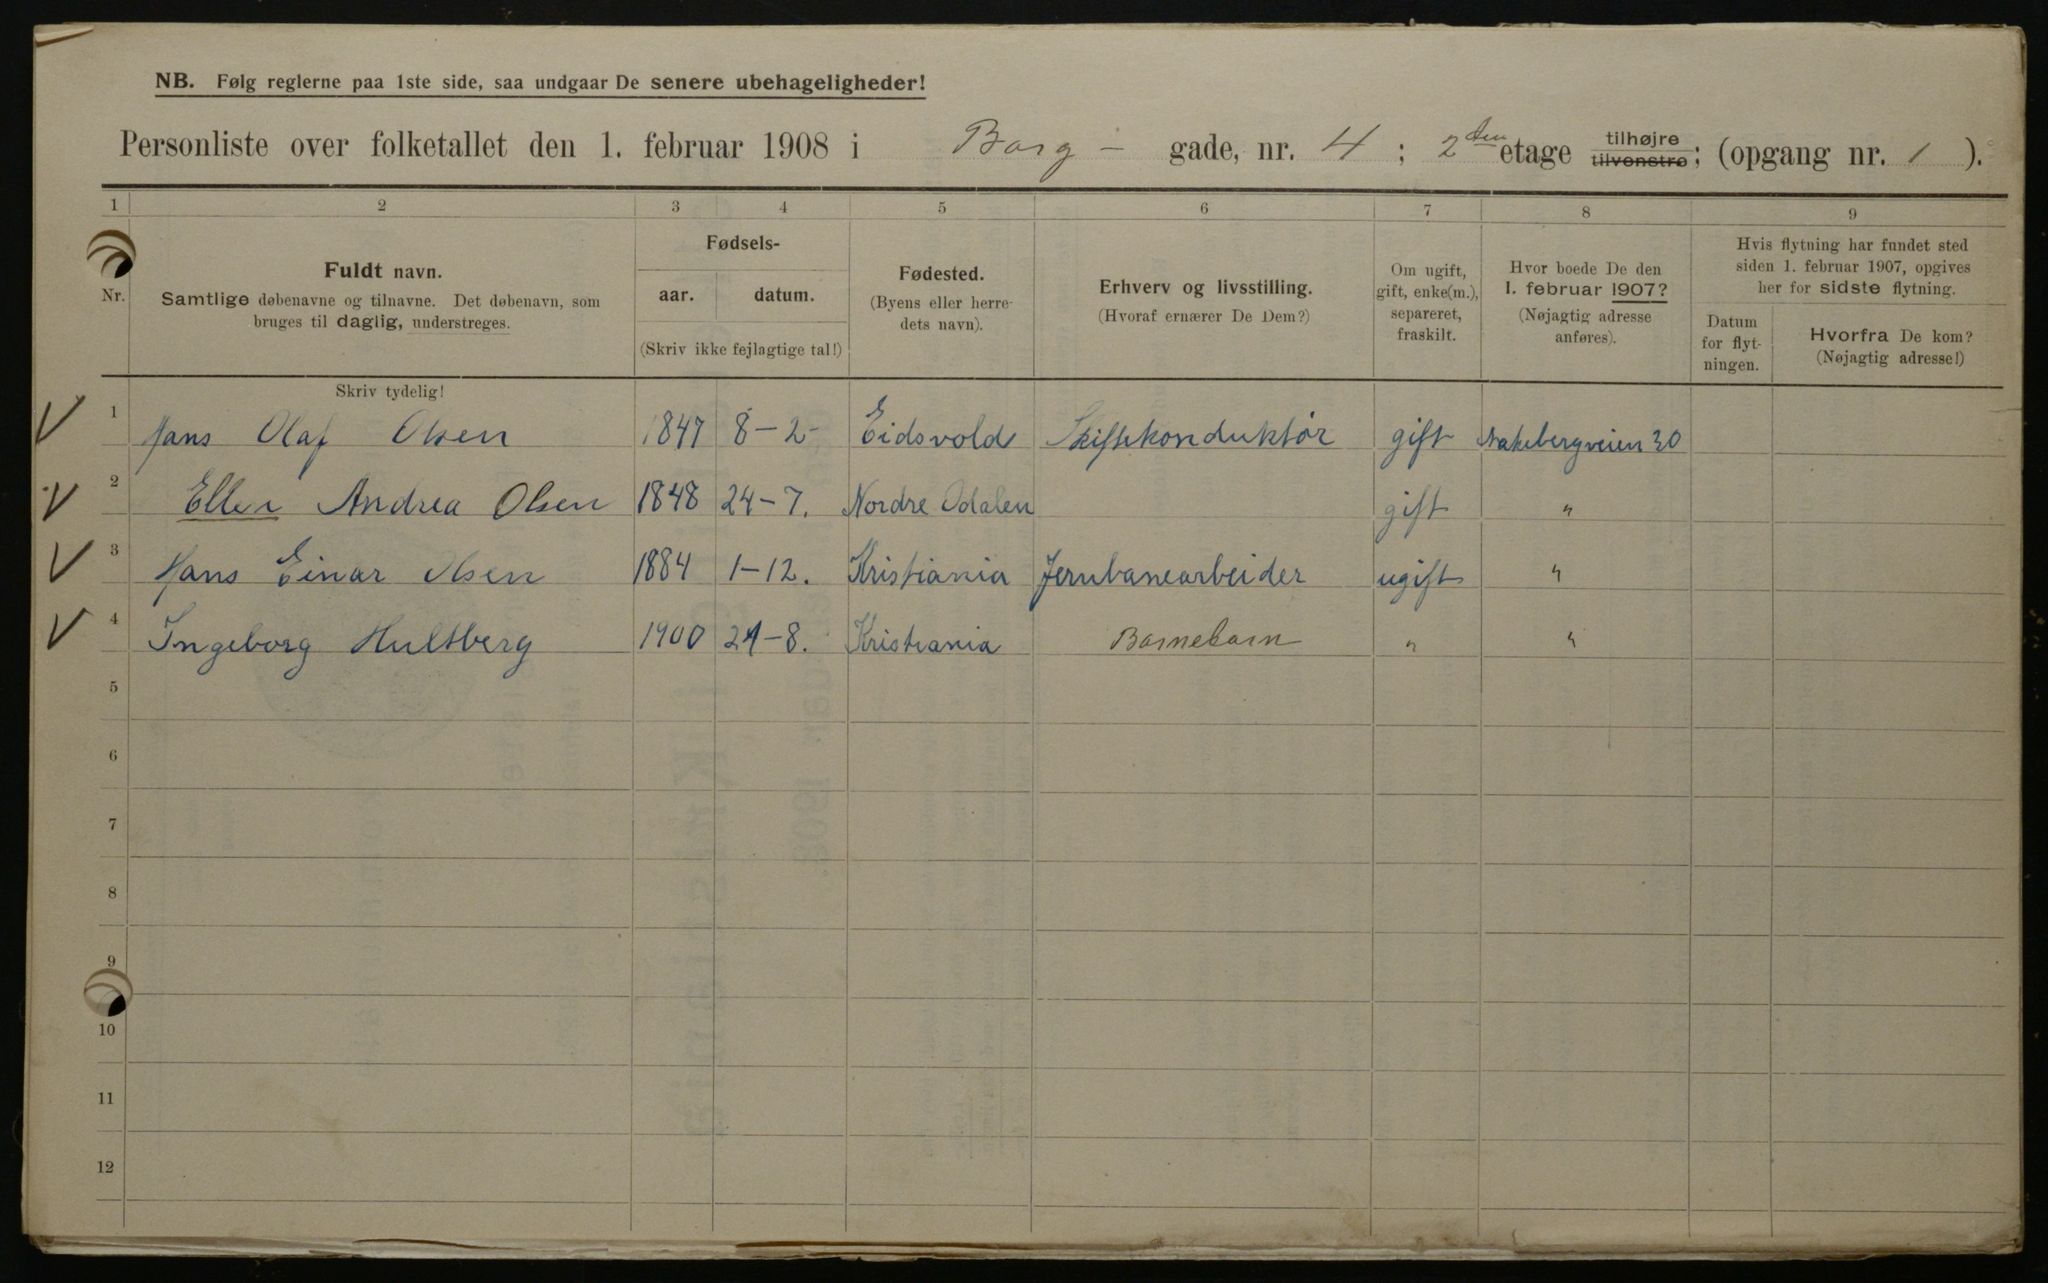 NB. Følg reglerne paa 1ste side, saa undgaar De senere ubehageligheder!
Personliste over folketallet den 1. februar 1908 i Borg - gade, nr. 4 ; 2den etage tilhøjre tilvenstre; (opgang nr. 1 ).
1 2 3 4 5 6 7 8 9
Nr.
Fuldt navn.
Samtlige døbenavne og tilnavne. Det døbenavn, som
bruges til daglig, understreges.
Fødsels-
aar. datum.
(Skriv ikke fejlagtige tal!)
Fødested.
(Byens eller herre-
dets navn).
Erhverv og livsstilling.
(Hvoraf ernærer De Dem?)
Om ugift,
gift, enke(m.),
separeret,
fraskilt.
Hvor boede De den
1. februar 1907?
(Nøjagtig adresse
anføres).
Hvis flytning har fundet sted
siden 1. februar 1907, opgives
her for sidste flytning.
Datum
for flyt-
ningen.
Hvorfra De kom?
(Nøjagtig adresse!)
Skriv tydelig!
1 Hans Olaf Olsen 1847 8-2- Eidsvold Skiftekonduktør gift 30
2 Ellen Andrea Olsen 1848 24-7. Nordre Odalen gift "
3 Hans Einar Olsen 1884 1-12. Kristiania Jernbanearbeider ugift "
4 Ingeborg Hultberg 1900 21-8. Kristiania Barnebarn " "
5
6
7
8
9
10
11
12